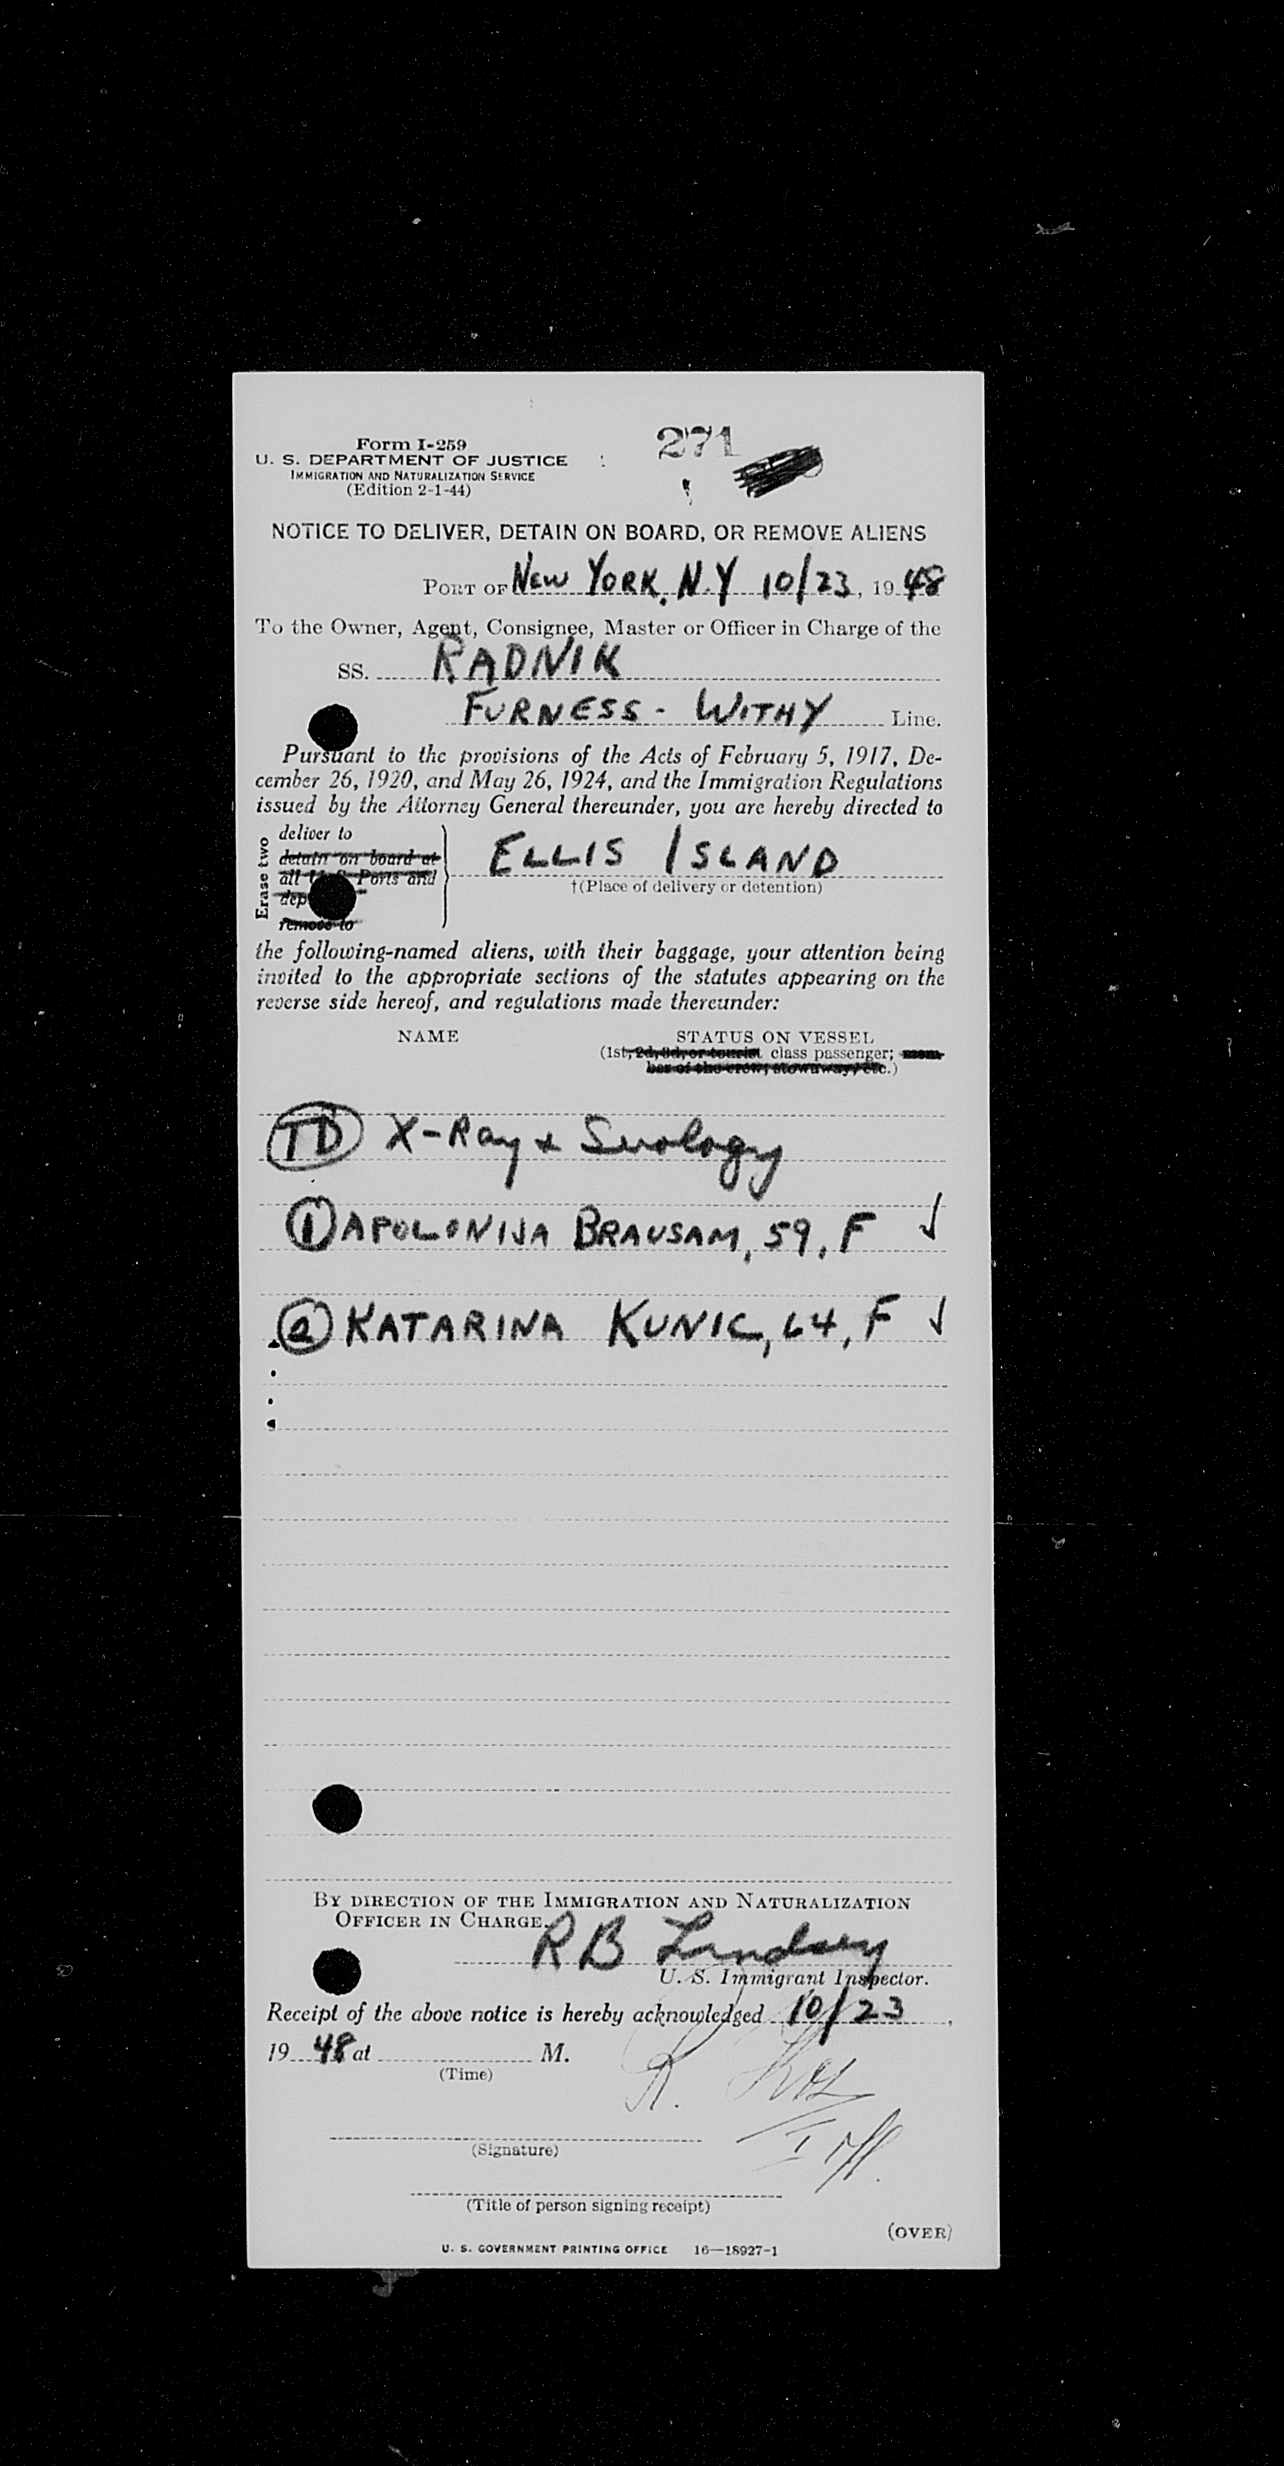 271
Form I-259
U. S. DEPARTMENT OF JUSTICE
IMMIGRATION AND NATURALIZATION SERVICE
(Edition 2-1-44)
NOTICE TO DELIVER, DETAIN ON BOARD, OR REMOVE ALIENS
PORT OF NEW YORK, N.Y 10/23, 1948
To the Owner, Agent, Consignee, Master or Officer in Charge of the
SS. RADNIK
FURNESS - WITHY Line.
Pursuant to the provisions of the Acts of February 5, 1917, De-
cember 26, 1920, and May 26, 1924, and the Immigration Regulations
issued by the Attorney General thereunder, you are hereby directed to
Erase two
deliver to
detain on board at
all U S Ports and
dep
remove to
ELLIS ISLAND
†(Place of delivery or detention)
the following-named aliens, with their baggage, your attention being
invited to the appropriate sections of the statutes appearing on the
reverse side hereof, and regulations made thereunder:
NAME STATUS ON VESSEL
(1st, 2d, 3d, or tourist class passenger; mem-
ber of the crew; stowaway, etc.)
TD X-Ray + Serology
1 APOLONIJA BRAUSAM, 59, F ✓
2 KATARINA KUNIC, 64, F ✓
BY DIRECTION OF THE IMMIGRATION AND NATURALIZATION
OFFICER IN CHARGE.
R B Lindsey
U. S. Immigrant Inspector.
Receipt of the above notice is hereby acknowledged 10/23,
1948 at M.
(Time)
R.
(Signature)
I off.
(Title of person signing receipt)
(OVER)
U. S. GOVERNMENT PRINTING OFFICE 16—18927-1